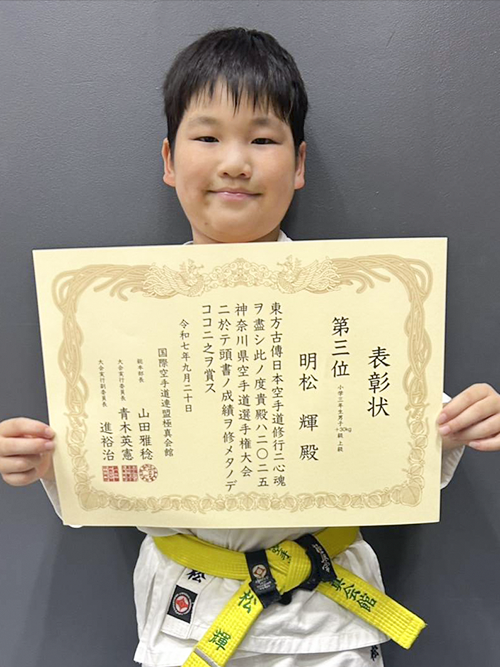 表彰状
第三位
小学三年生男子
+30kg
級 上級
明松 輝 殿
東方古傳日本空手道修行ニ心魂
ヲ盡シ此ノ度貴殿ハ二〇二五
神奈川県空手道選手権大会
ニ於テ頭書ノ成績ヲ修メタノデ
ココニ之ヲ賞ス
令和七年九月二十日
国際空手道連盟極真会館
総本部長 山田雅稔
大会実行委員長 青木英憲
大会実行副委員長 進裕治
松
松 輝
空手
真会館